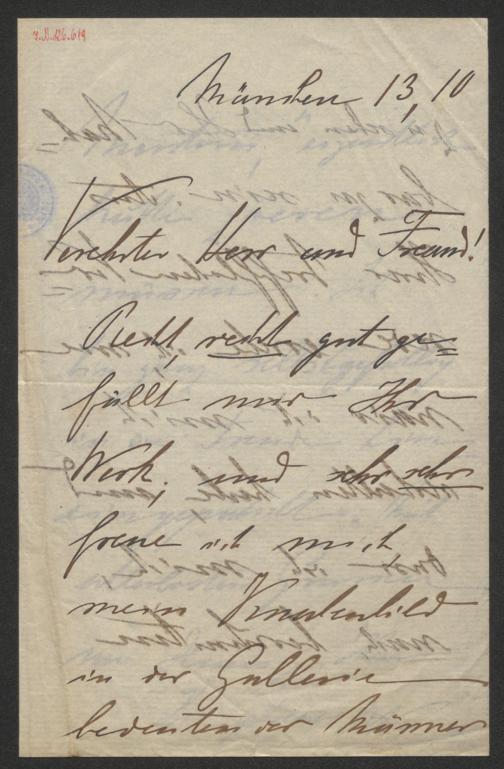 München 13, 10
Verehrter Herr und Freund!
Recht, recht gut ge=
fällt mir Ihr
Werk, und sehr, sehr
freue ich mich,
mein Knabenbild
in der Gallerie
bedeutender Männer